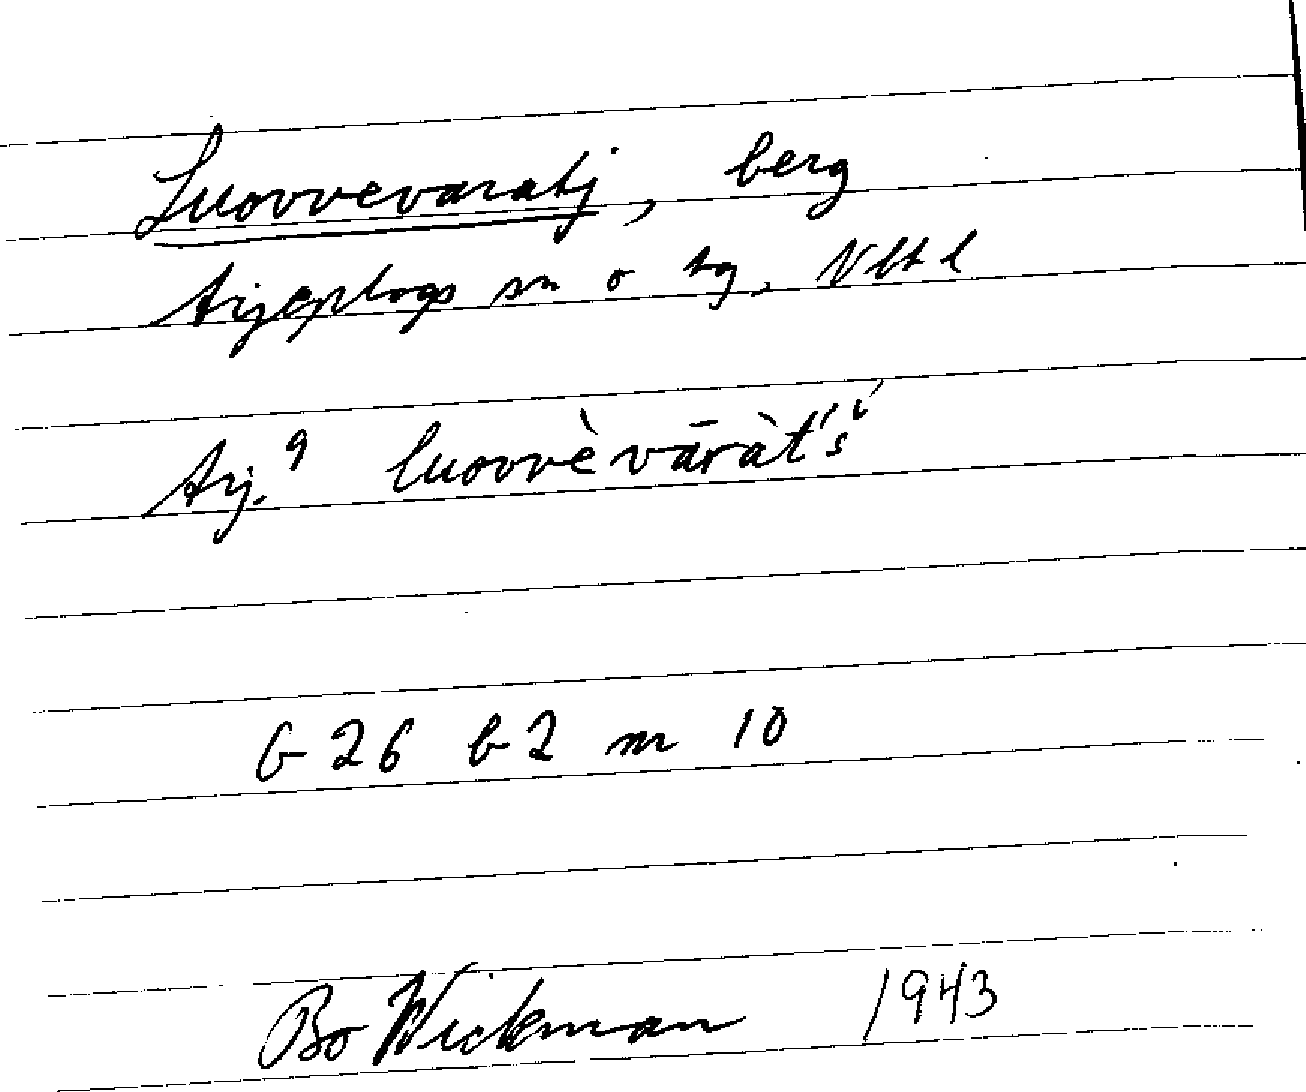 Luovvevaratj, berg
Arjeplogs sn o tg, Vbtl
Arj. 9 luovvè vāràt́'ś
G 26 b 2 nr 10
Bo Wickman 1943